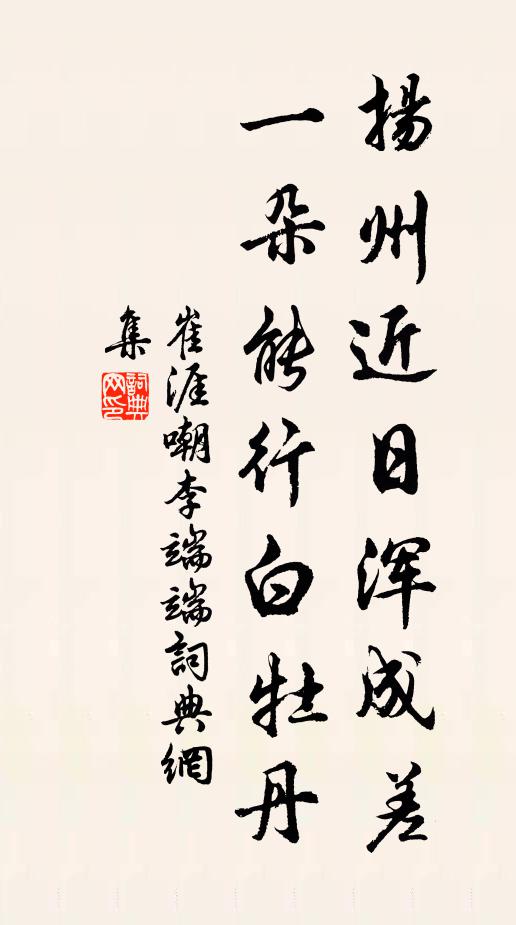 揚州近日浑成差
一朵能行白牡丹
崔涯嘲李端端詞典網
集
詞典网印